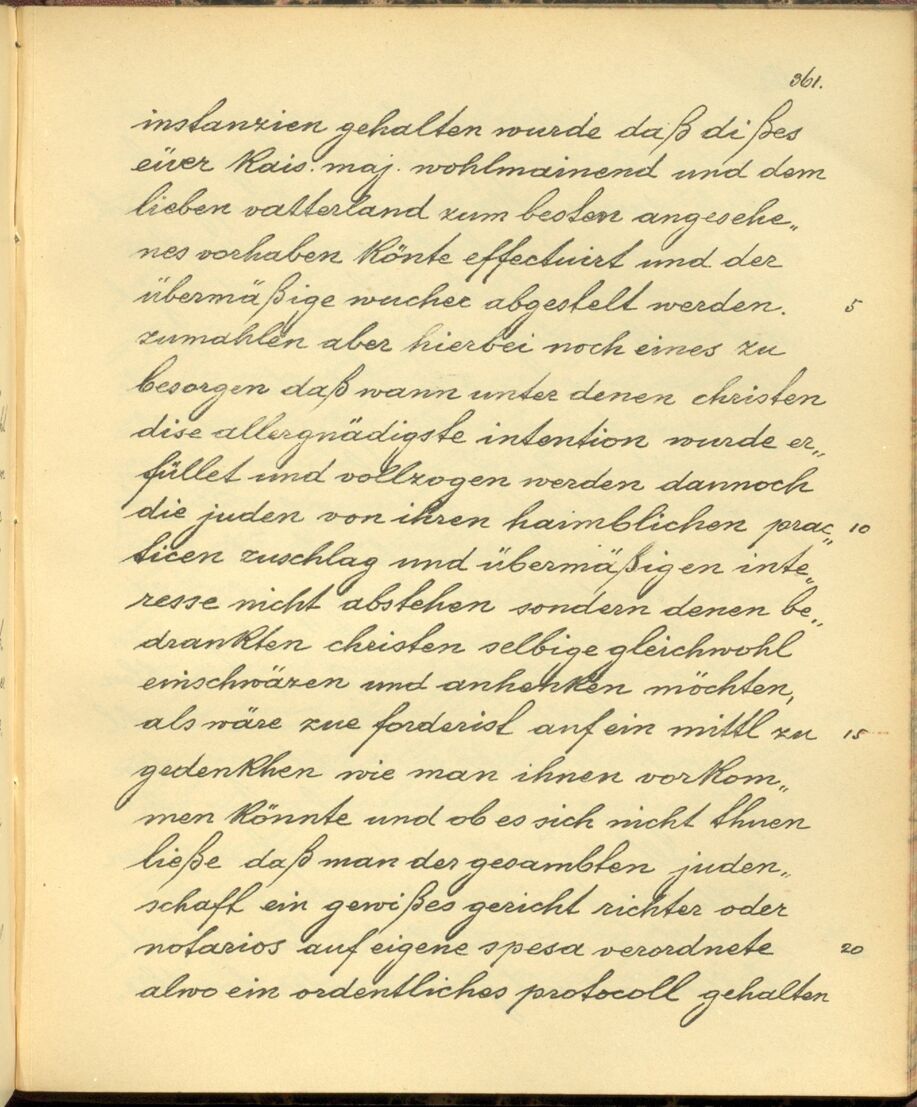 361.
instanzien gehalten wurde daß dißes
eüer Kais. maj. wohlmainend und dem
lieben vatterland zum besten angesehe„
nes vorhaben könte effectuirt und der
übermäßige wucher abgestelt werden. 5
zumahlen aber hierbei noch eines zu
besorgen daß wann unter denen christen
dise allergnädigste intention wurde er„
füllet und vollzogen werden dannoch
die juden von ihren haimblichen prac„ 10
ticen zuschlag und übermäßigen inte„
resse nicht abstehen sondern denen be„
drankten christen selbige gleichwohl
einschwäzen und anhenken möchten,
als wäre zue forderist auf ein mittl zu 15
gedenkhen wie man ihnen vorkom„
men könnte und ob es sich nicht thuen
ließe daß man der gesambten juden„
schaft ein gewißes gericht richter oder
notarios auf eigene spesa verordnete 20
alwo ein ordentliches protocoll gehalten